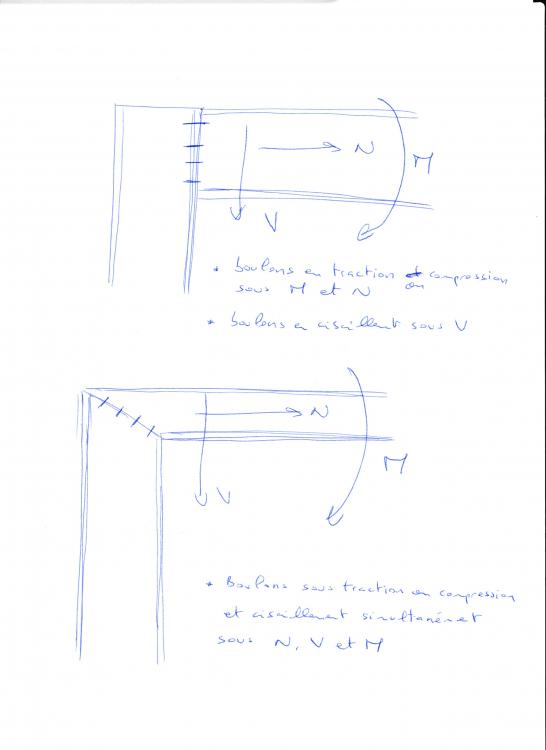 N
M
V
* boulons en traction et compression
sous M et N ou
* boulons en cisaillent sous V
N
M
V
* Boulons sous traction ou compression
et cisaillement simultanément
sous N, V et M